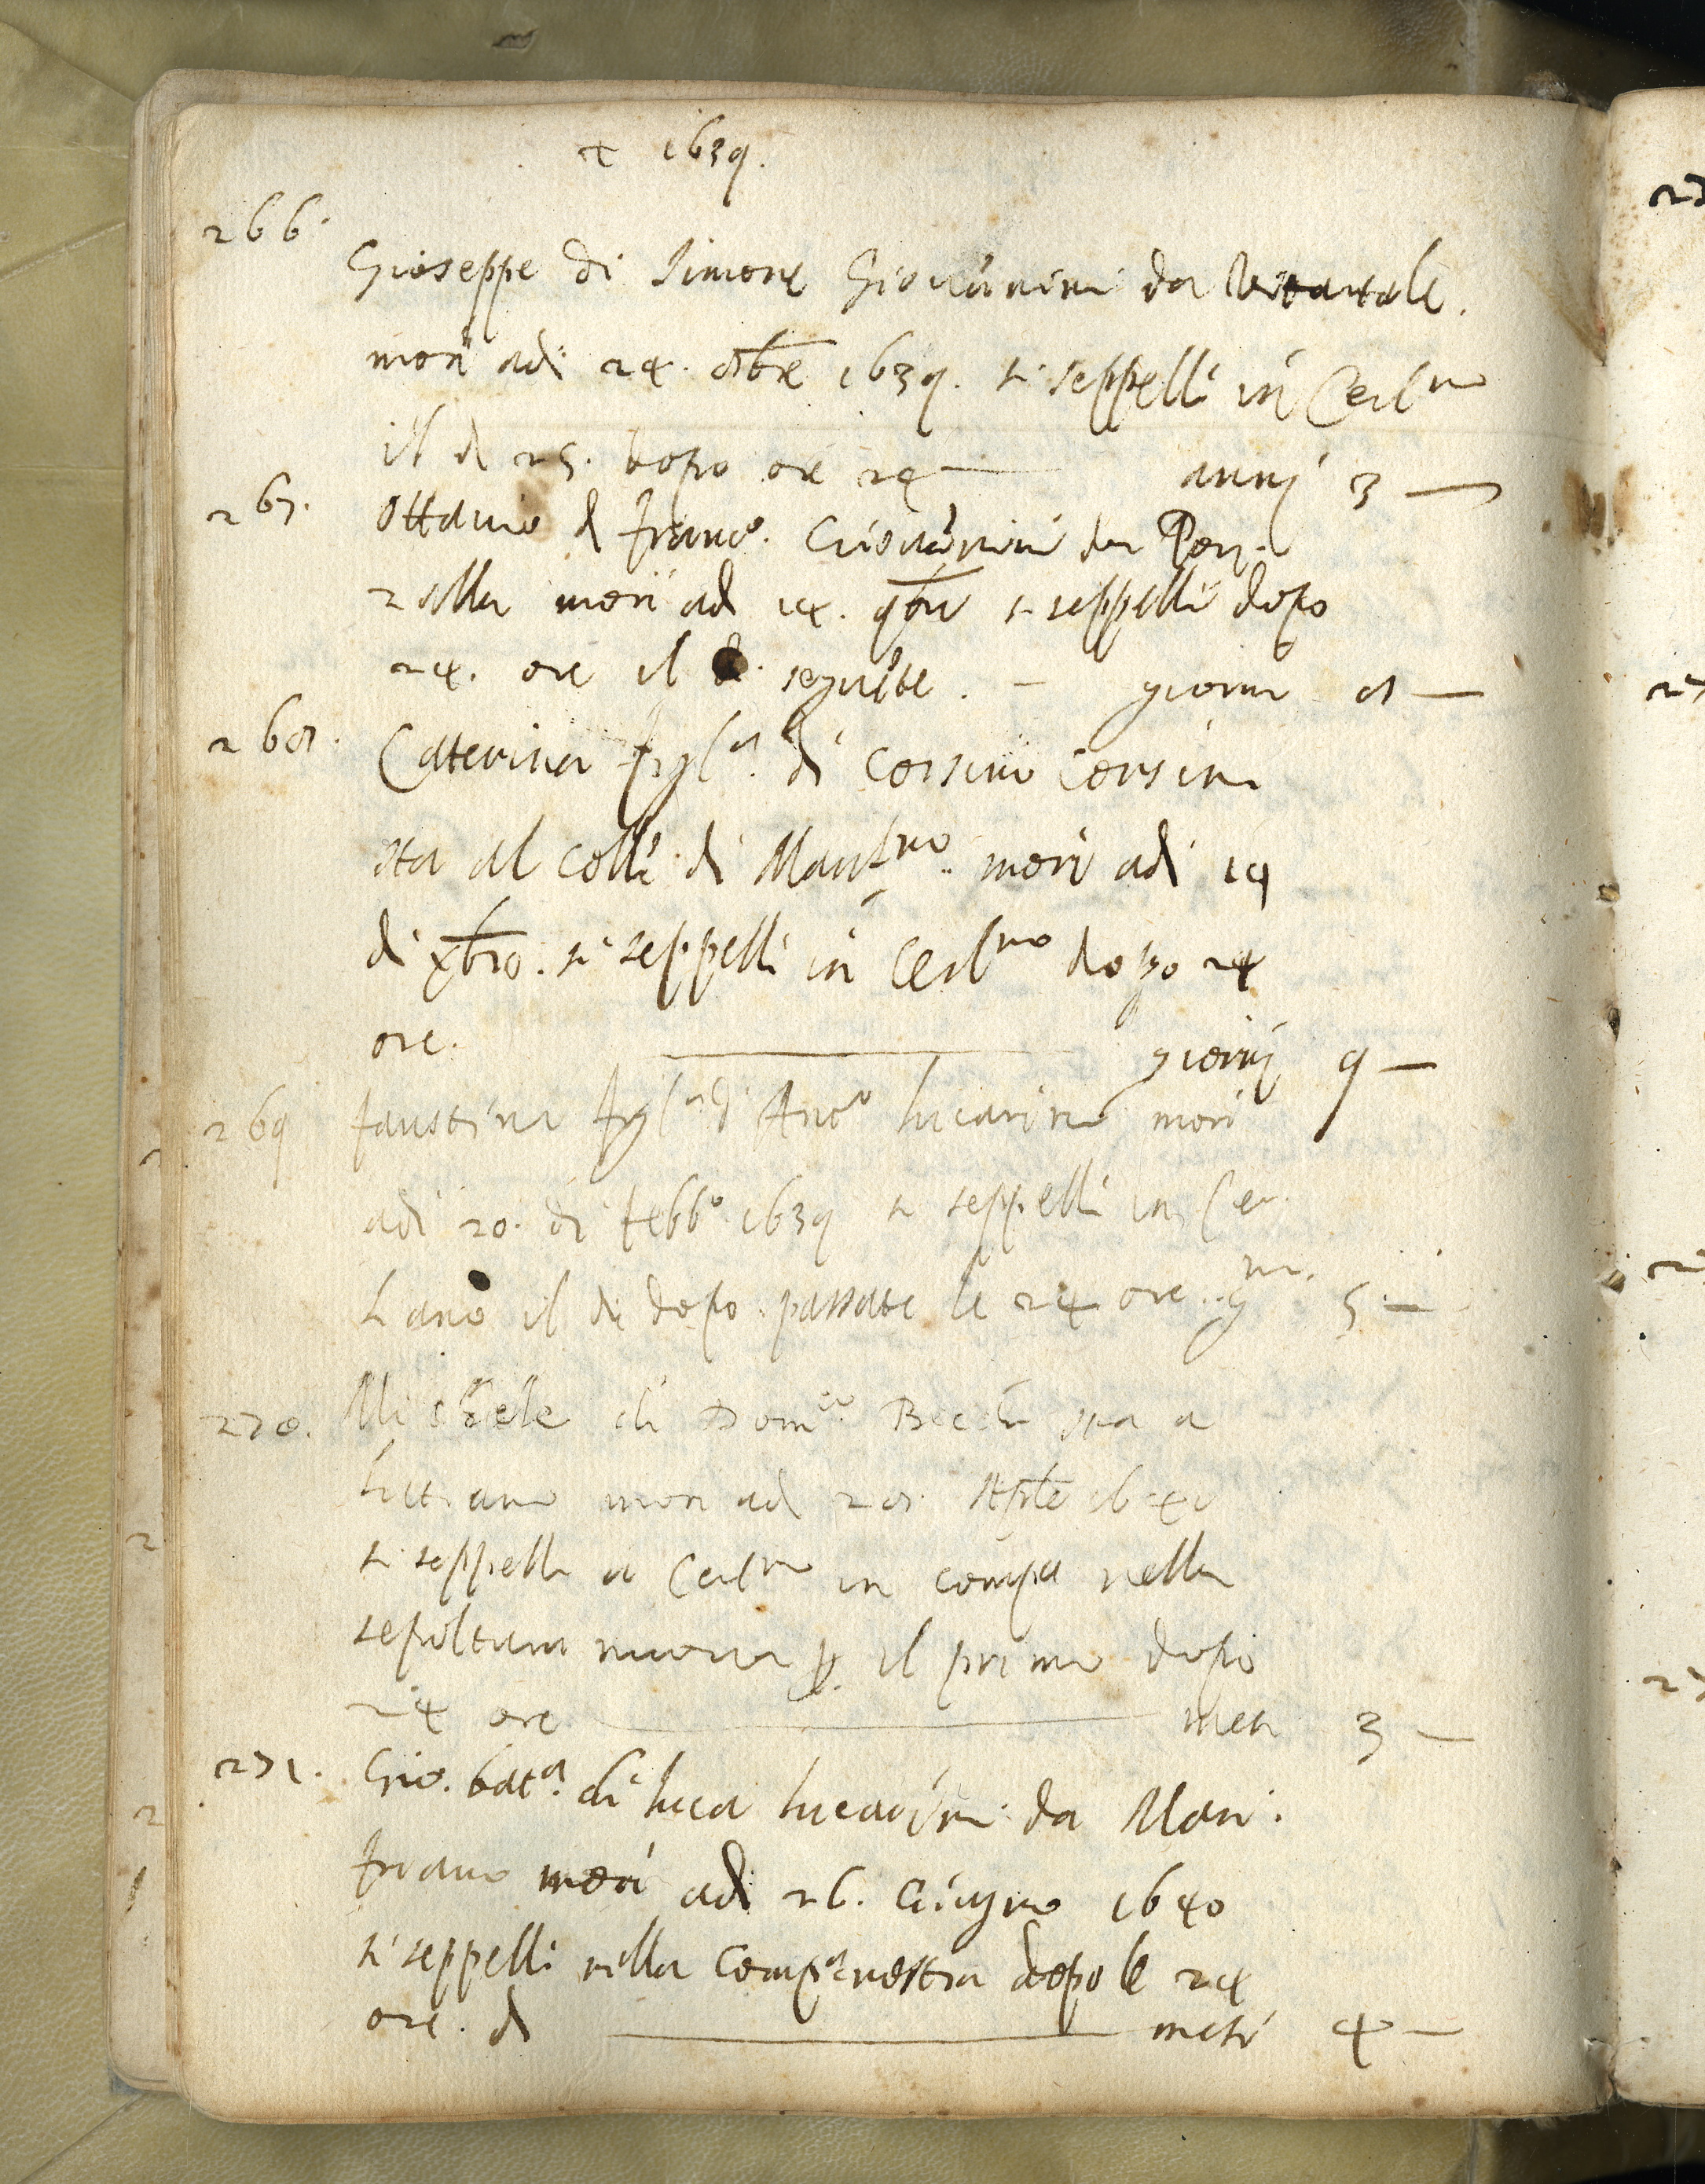 + 1639.
266. Gioseppe di Simone Giovanini da
morì adì 24. 8bre 1639. si seppellì in Cerlno
il dì 25. dopo ore 24 — anni 3 —
267. Ottavio di Franco. Giovanini da Poz-
zolla morì adì 14. 9bre si seppellì dopo
24. ore il dì seguẽte. - giorni 8 —
268. Caterina figla. di Corsino Corsini
sta al colle di Manfno. morì adì 19
di xbro. si seppellì in Cerlno dopo 24
ore. — giorni 9 —
269 Faustina figla di Anto Lucarini morì
adì 20. di febbo. 1639 si seppellì in Cer
liano il dì dopo passate le 24 ore. gni. 5 —
270. Michele di Domco. Becchi sta a
Luttiano morì adì 28 1640
si seppellì a Cerlno in compa nella
sepoltura nuova p. il primo dopo
24 ore — mesi 3 —
271. Gio. bata. di Luca Lucarini da Man-
friano morì adì 26. Giugno 1640
si seppellì nella Compa nostra dopo le 24
ore. di — mesi 4 —